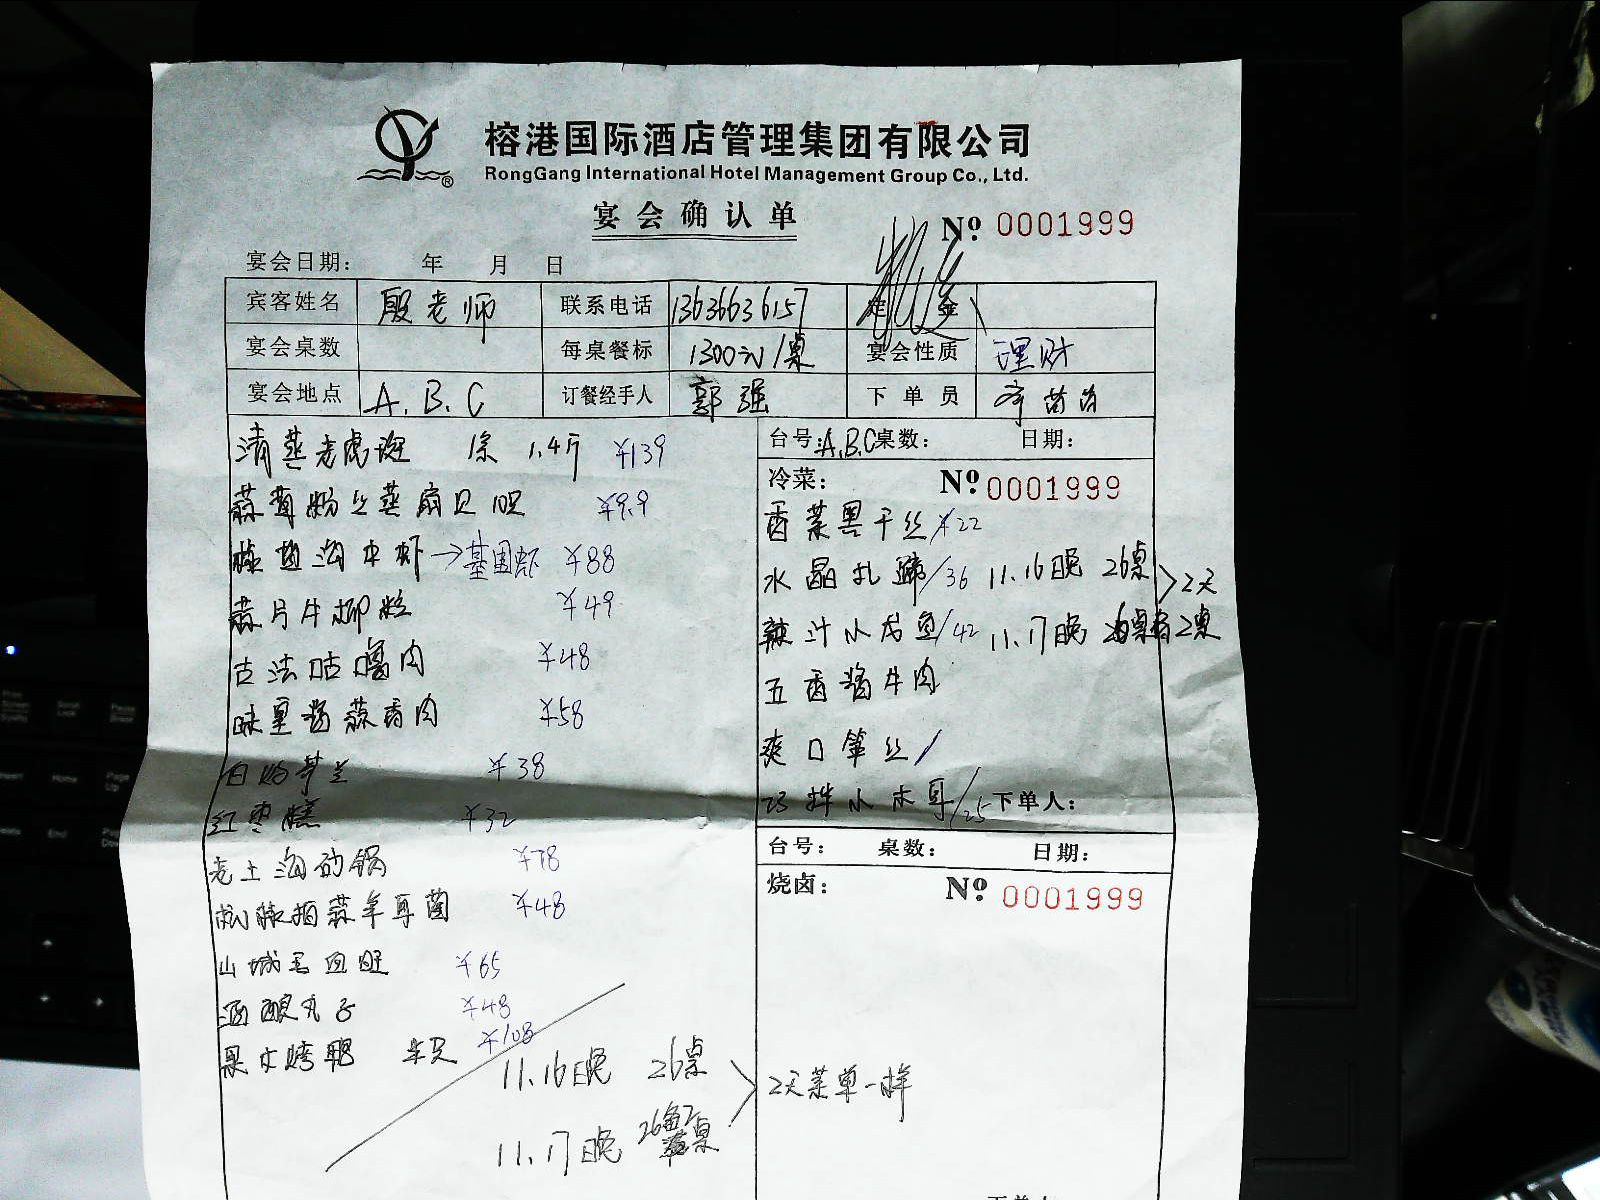 榕港国际酒店管理集团有限公司
RongGang International Hotel Management Group Co., Ltd.
宴会确认单
№ 0001999
宴会日期： 年 月 日
宾客姓名 殷老师 联系电话 13636636157 定金
宴会桌数 每桌餐标 1300元/桌 宴会性质 理财
宴会地点 A.B.C 订餐经手人 郭强 下单员
清蒸老虎斑 条 1.4斤 ¥139
蒜茸粉丝蒸扇贝 ¥9.9
→基围虾 ¥88
蒜片牛柳粒 ¥49
古法咕噜肉 ¥48
味里酱蒜香肉 ¥58
白灼芥兰 ¥38
红枣糕 ¥32
老土沟砂锅 ¥78
¥48
山城毛血旺 ¥65
酒酿丸子 ¥48
果木烤鸭 ¥108
11.16晚 26桌
11.17晚
2天菜单一样
台号：A.B.C 桌数： 日期：
冷菜： № 0001999
香菜黑干丝 ¥22
水晶扎蹄/36 11.16晚 26桌 >2天
辣汁小龙鱼/42 11.17晚
五香酱牛肉
爽口笋丝/
拌小木耳/25 下单人：
台号： 桌数： 日期：
烧卤： № 0001999